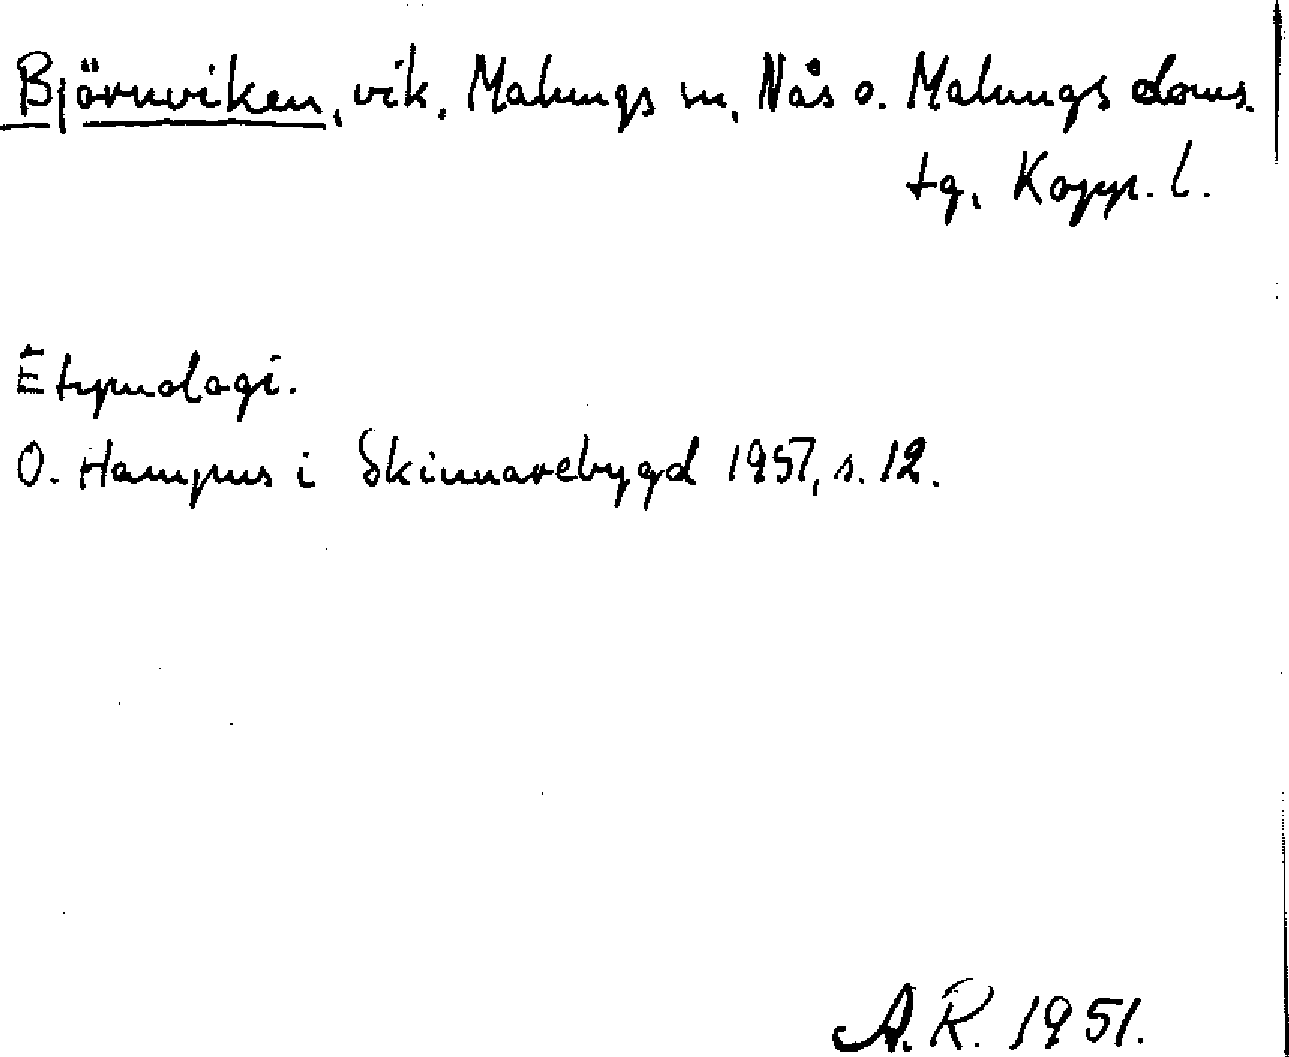 Björnviken, vik, Malungs sn, Nås o. Malungs doms.
tg, Kopp. l.
Etymologi.
O. Hampus i Skinnarebygd 1951, s. 12.
A.R. 1951.